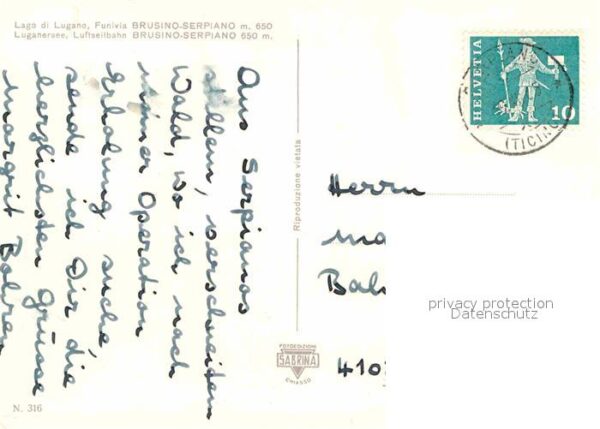 Lago di Lugano, Funivia BRUSINO-SERPIANO m. 650
Luganersee, Luftseilbahn BRUSINO-SERPIANO 650 m.
Aus Serpianos
stillem, verschneitem
Wald, wo ich nach
einer Operation
Erholung suche,
sende ich Dir die
herzlichsten Grüsse
Margrit
Riproduzione vietata
FOTOEDIZIONI
SABRINA
CHIASSO
N. 316
HELVETIA
10
(TICINO)
Herrn
Ma
410
privacy protection
Datenschutz